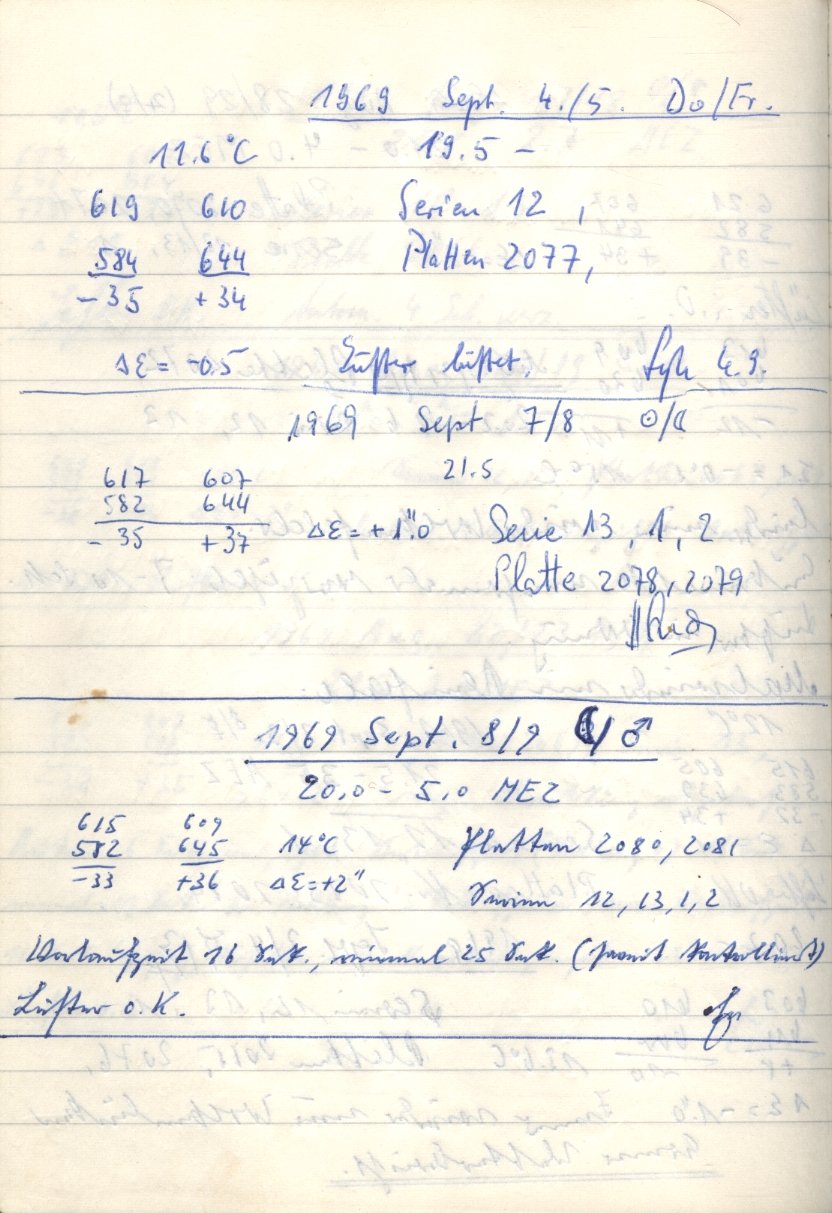 1969 Sept. 4./5. Do/Fr.
11.6°C 19.5 –
619 610 Serien 12,
584 644 Platten 2077,
-35 +34
Δε = -0.5 Lüfter lüftet. 4.9.
1969 Sept 7/8 ☉/☾
617 607 21.5
582 644
-35 +37 Δε = +1".0 Serie 13, 1, 2
Platte 2078, 2079
1969 Sept. 8/9 ☾/♂
20.0 – 5.0 MEZ
615 609
582 645 14°C Platten 2080, 2081
-33 +36 Δε = +2" Serien 12, 13, 1, 2
Vorlaufzeit 16 Sek., einmal 25 Sek. (soweit kontrolliert)
Lüfter o.K.